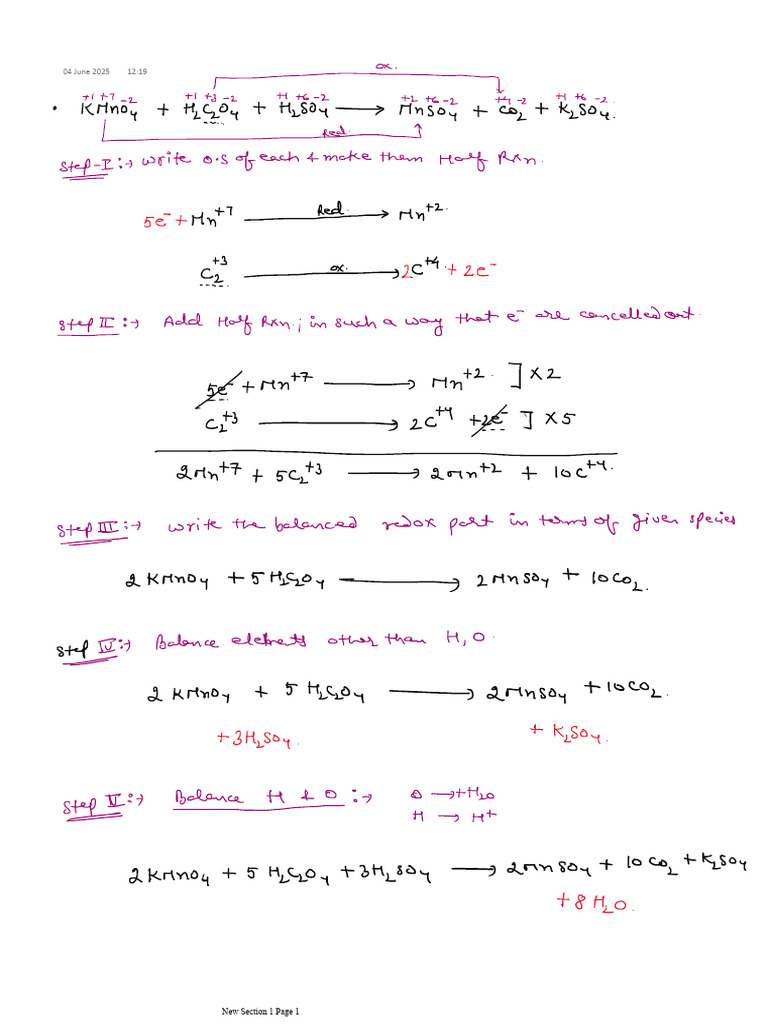 04 June 2025 12:19
ox.
+1 +7 -2 +1 +3 -2 +1 +6 -2 +2 +6 -2 +4 -2 +1 +6 -2
• KMnO₄ + H₂C₂O₄ + H₂SO₄ ⟶ MnSO₄ + CO₂ + K₂SO₄.
Red.
Step-I:→ Write O.S of each & make them Half Rxn.
5e⁻ + Mn⁺⁷ ⟶ Red. Mn⁺².
C₂⁺³ ⟶ ox. 2C⁺⁴ + 2e⁻
Step II:→ Add Half Rxn; in such a way that e⁻ are cancelled out.
5e⁻ + Mn⁺⁷ ⟶ Mn⁺². ] X 2
C₂⁺³ ⟶ 2C⁺⁴ + 2e⁻ ] X 5
2Mn⁺⁷ + 5C₂⁺³ ⟶ 2Mn⁺² + 10C⁺⁴.
Step III:→ Write the balanced redox part in terms of given species
2 KMnO₄ + 5 H₂C₂O₄ ⟶ 2MnSO₄ + 10CO₂.
Step IV:→ Balance elements other than H, O.
2 KMnO₄ + 5 H₂C₂O₄ ⟶ 2MnSO₄ + 10CO₂.
+ 3H₂SO₄. + K₂SO₄.
Step V:→ Balance H & O:→ O ⟶ +H₂O
H ⟶ H⁺
2KMnO₄ + 5 H₂C₂O₄ + 3H₂SO₄ ⟶ 2MnSO₄ + 10CO₂ + K₂SO₄
+ 8 H₂O.
New Section 1 Page 1